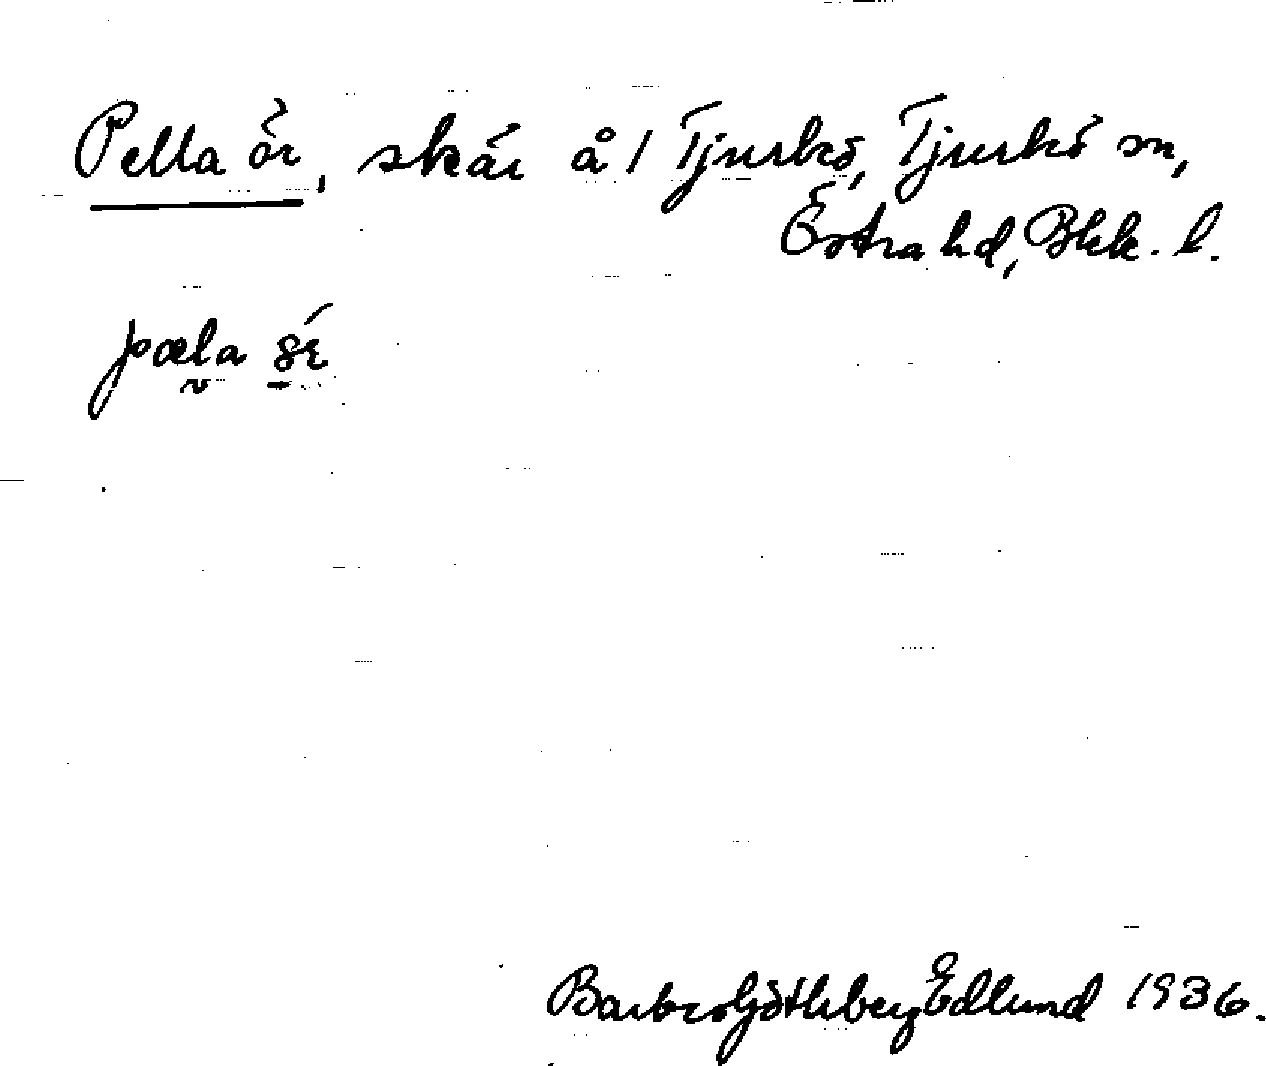 Pella ör, skär å 1 Tjurkö, Tjurkö sn,
Östra hd, Blek. l.
pæla
Barbro Götlberg Edlund 1936.